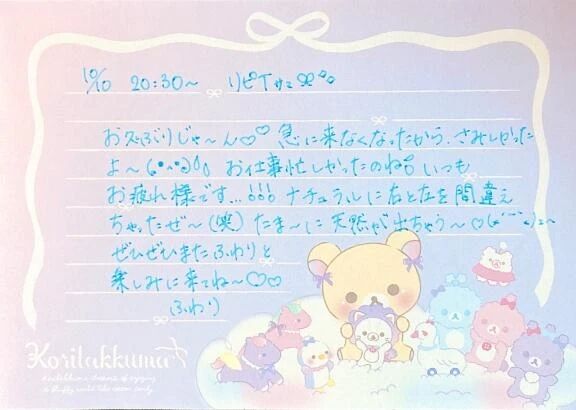 10/10 20:30〜 リピTサマ
お久ぶりじゃ〜ん♡♡ 急に来なくなったから、さみしかった
よ〜 お仕事忙しかったのね いつも
お疲れ様です…!!! ナチュラルに右と左を間違え
ちゃったぜ〜(笑) たま〜に天然が出ちゃう〜♡
ぜひぜひまたふわりと
楽しみに来てね〜♡♡
ふわり
Korilakkuma